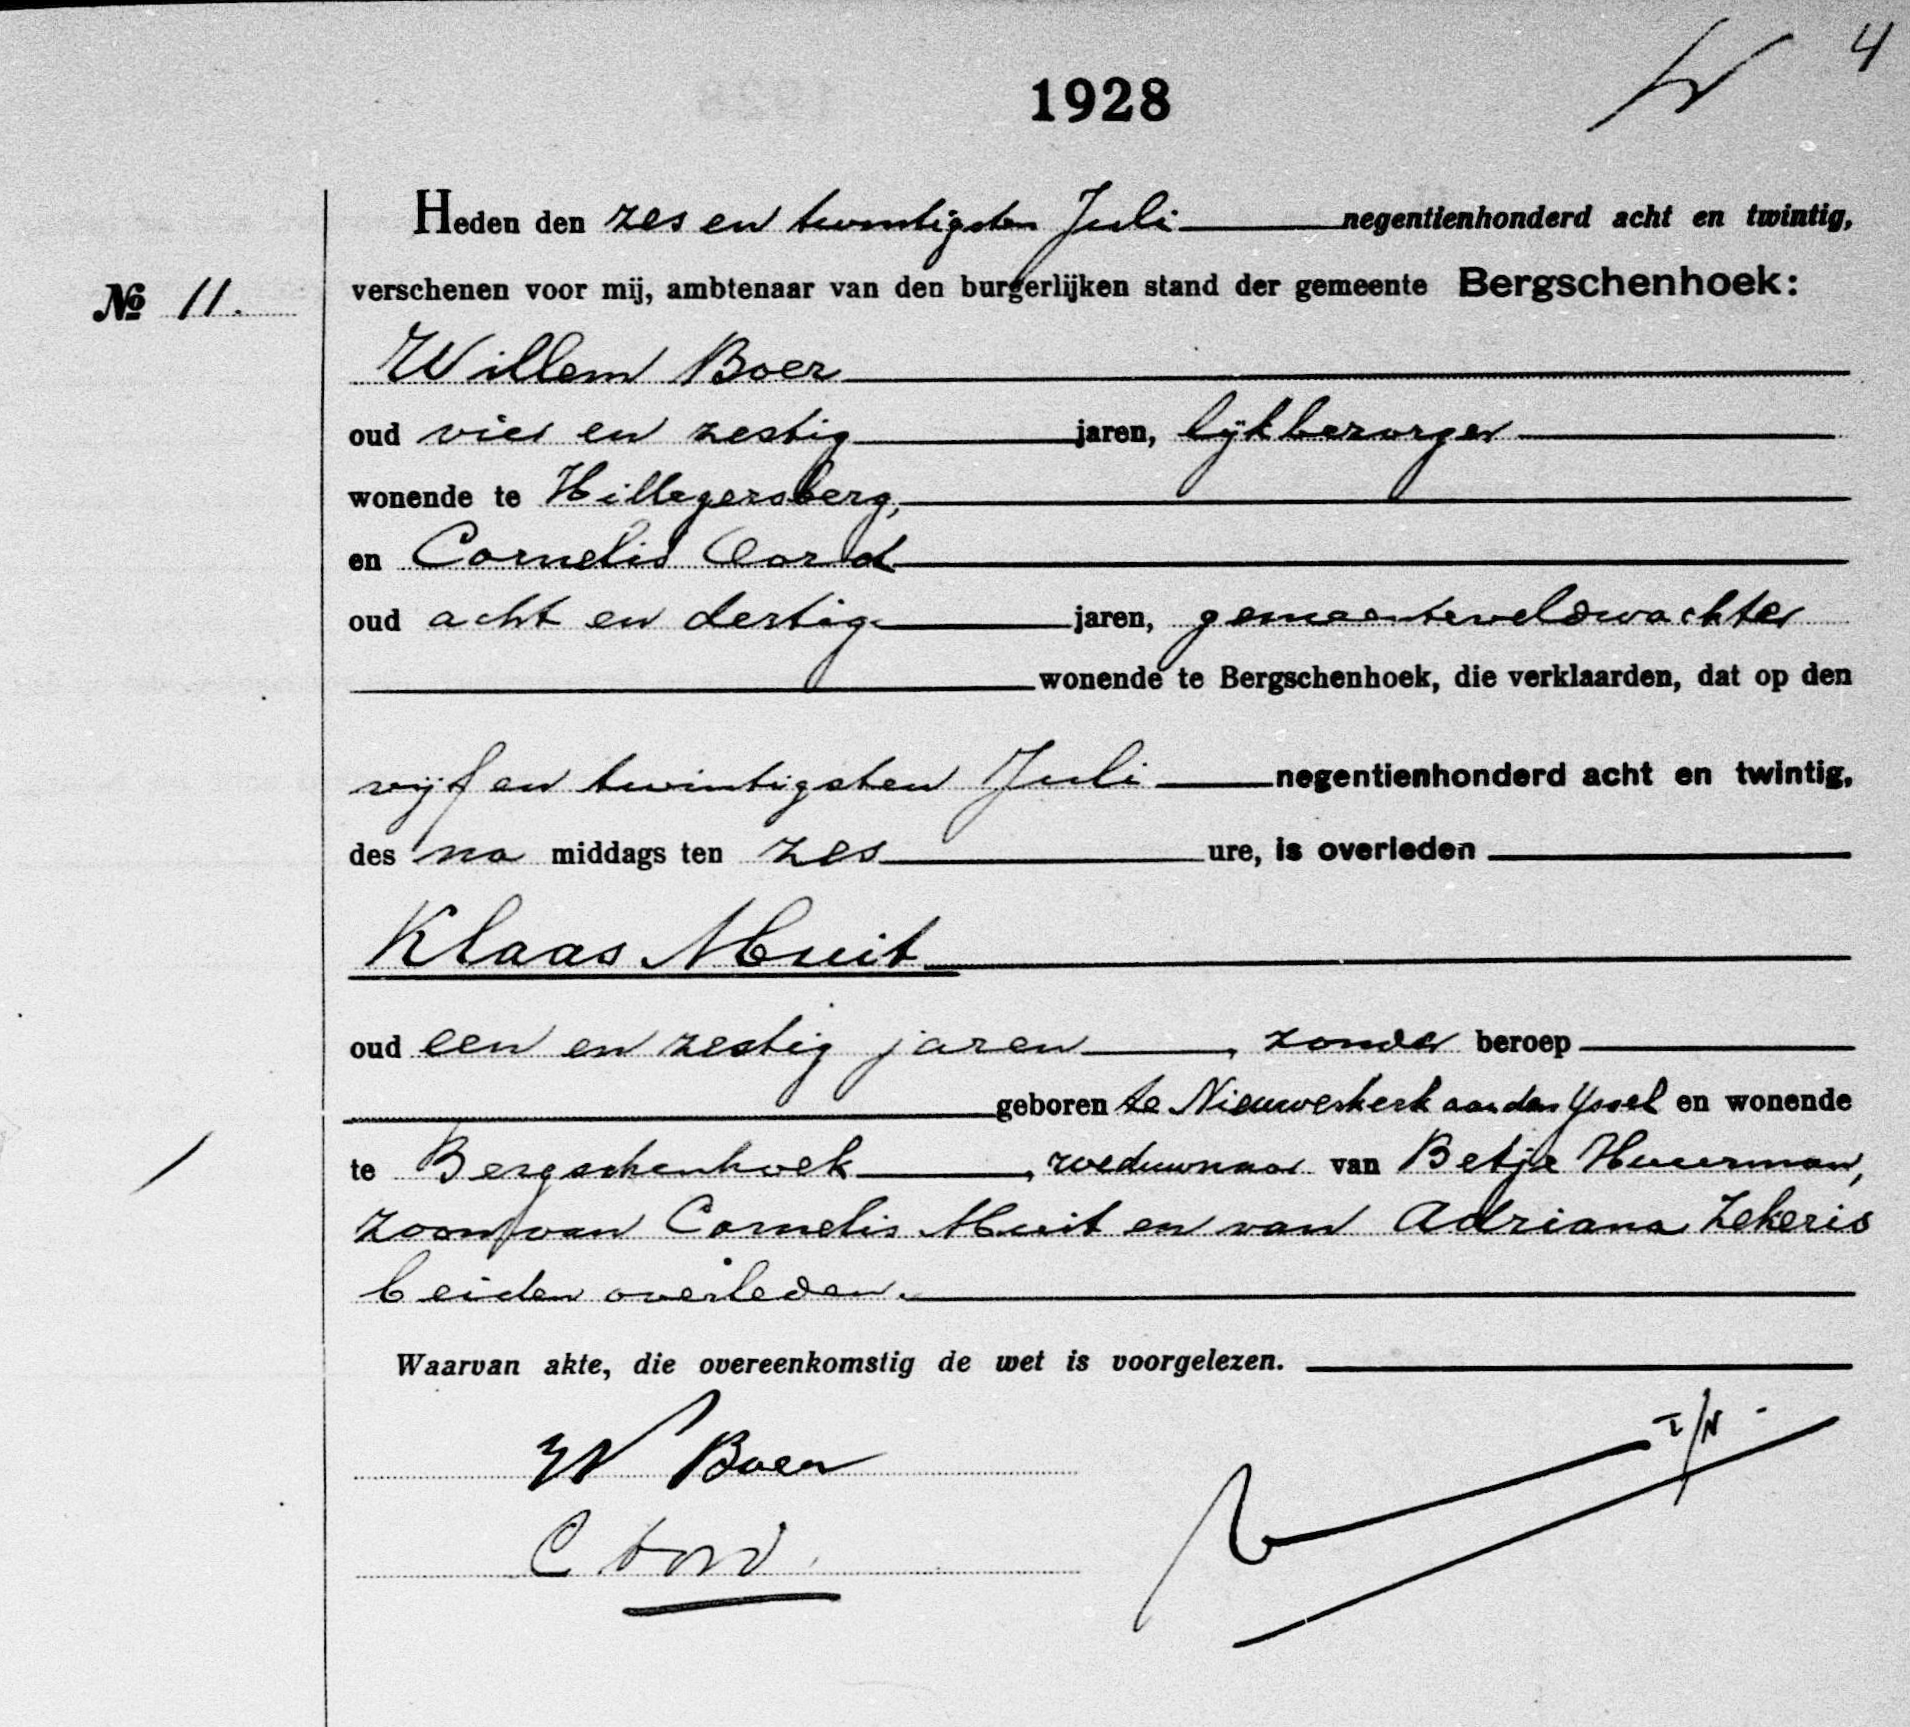 4
1928
Heden den zes en twintigsten Juli negentienhonderd acht en twintig,
verschenen voor mij, ambtenaar van den burgerlijken stand der gemeente Bergschenhoek:
No 11.
Willem Boer
oud vier en zestig jaren, lijkbezorger
wonende te Hillegersberg,
en Cornelis Oord
oud acht en dertig jaren, gemeenteveldwachter
wonende te Bergschenhoek, die verklaarden, dat op den
vijf en twintigsten Juli negentienhonderd acht en twintig,
des na middags ten zes ure, is overleden
Klaas Muit
oud een en zestig jaren, zonder beroep
geboren te Nieuwerkerk aan den Yssel en wonende
te Bergschenhoek, weduwnaar van Betje Huurman,
zoon van Cornelis Muit en van Adriana Zekeris
beiden overleden.
Waarvan akte, die overeenkomstig de wet is voorgelezen.
W Boer
C Oord